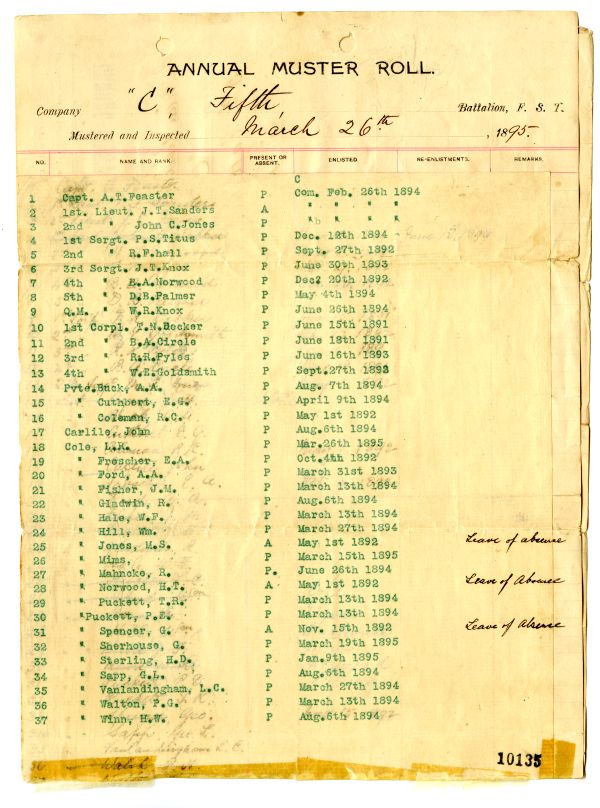 ANNUAL MUSTER ROLL.
Company "C", Fifth Battalion, F. S. T.
Mustered and Inspected March 26th, 1895.
NO. NAME AND RANK. PRESENT OR ABSENT. ENLISTED. RE-ENLISTMENTS. REMARKS.
C
1 Capt. A.T.Feaster P Com. Feb. 26th 1894
2 1st. Lieut. J.T.Sanders A " " " "
3 2nd " John C.Jones P "b " " "
4 1st Sergt. P.S.Titus P Dec. 12th 1894
5 2nd " R.F.hall P Sept. 27th 1892
6 3rd Sergt. J.T.Knox P June 30th 1893
7 4th " B.A.Norwood P Dec? 20th 1892
8 5th " D.B.Palmer P May 4th 1894
9 Q.M. " W.R.Knox P June 26th 1894
10 1st Corpl. T.N.Becker P June 15th 1891
11 2nd " B.A.Circle P June 18th 1891
12 3rd " R.R.Pyles P June 16th 1893
13 4th " W.E.Goldsmith P Sept.27th 1892
14 Pvte.Buck, A.A. P Aug. 7th 1894
15 " Cuthbert, E.G. P April 9th 1894
16 " Coleman, R.C. P May 1st 1892
17 Carlile, John P Aug.6th 1894
18 Cole, L.K. P Mar.26th 1895
19 " Frescher, E.A. P Oct.4th 1892
20 " Ford, A.A. P March 31st 1893
21 " Fisher, J.M. P March 13th 1894
22 " Gladwin, R. P Aug.6th 1894
23 " Hale, W.F. P March 13th 1894
24 " Hill, Wm. P March 27th 1894
25 " Jones, M.S. A May 1st 1892 Leave of absence
26 " Mims, P March 15th 1895
27 " Mahncke, R. P. June 26th 1894
28 " Norwood, H.T. A May 1st 1892 Leave of Absence
29 " Puckett, T.R. P March 13th 1894
30 "Puckett, P.E. P March 13th 1894
31 " Spencer, G. A Nov. 15th 1892 Leave of Absence
32 " Sherhouse, G. P March 19th 1895
33 " Sterling, H.D. P Jan.9th 1895
34 " Sapp, G.L. P Aug.6th 1894
35 " Vanlandingham, L.C. P March 27th 1894
36 " Walton, P.G. P March 13th 1894
37 " Winn, H.W. P Aug.6th 1894
10135